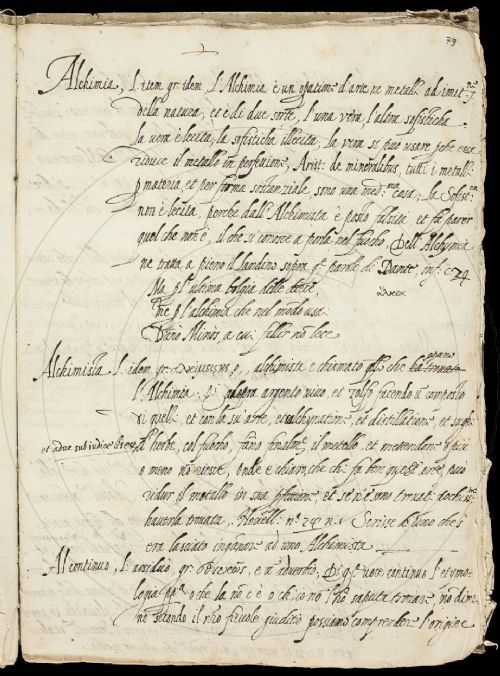 79
Alchimia, l: item gr: idem l'Alchimia è un opatione d'arte ne metalli ad imit.ne
della natura, et è di due sorte, l'una vera, l'altra sofisticha
la vera è lecita, la sofisticha illecita, la vera si può usare pche
riduce il metallo in perfezione, Arist: de mineralibus, tutti i metalli
p materia, et per forma sostanziale sono una med.ma cosa, la Sofist.ca
non è lecita, perche dall' Alchimista è posto falsità et fa parer
quel che non è, il che si conosce a porla nel fuocho. Dell' Alchymia
ne tratta a pieno il landino sopra q.e parole di Dante, inf: c. 29
Ma p l'ultima bolgia delle diece
Me p l'alchimia che nel mondo usai
Danò Minòs, a cui fallir no lece
Alchimista l: idem gr: alchimista è chiamato che opano
l'Alchimia, argento vivo, et zolfo facendo il composto
di quelli et con la su' arte, et et distillatione, et
et adue subiudice lis est
herbe, col fuocho, fano finalm.e il metallo, et mettendone
o meno no riesce, onde è chiaro, che chi fa ben quest' arte, può
ridur il metallo in sua pfetione, et se n'è uno
haverla trovata, Novell: n.o Scrisse Bruno che s'
era lasciato inganare ad uno Alchimista
Al continuo, l: assiduo, gr: è adverbio, Di q.e voce continuo l'etymo
logia o che la no c'è o ch' io no l'ho saputa trovare, no dim.e
no secondo il n.ro fievole giuditio possiamo comprender l'origine